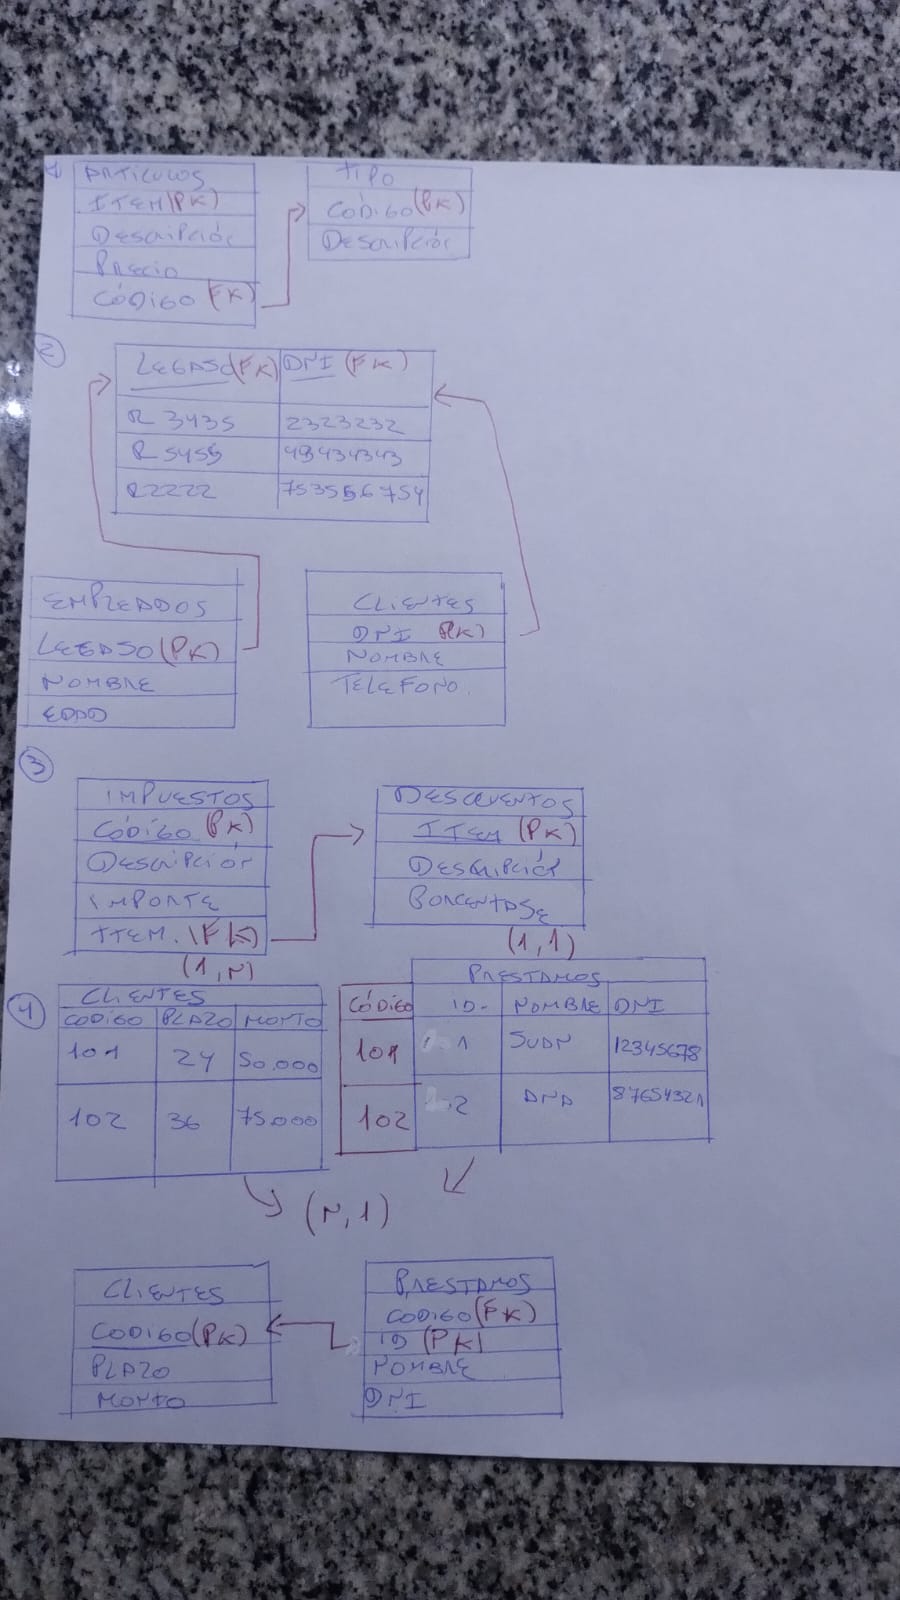 1
ARTÍCULOS
ITEM (PK)
Descripción
Precio
CÓDIGO (FK)
TIPO
CÓDIGO (PK)
Descripción
2
LEGAJO (FK) DNI (FK)
R 3435 2323232
R 5455 49434343
R2222 753556754
EMPLEADOS
LEGAJO (PK)
NOMBRE
EDAD
CLIENTES
DNI (PK)
NOMBRE
TELEFONO.
3
IMPUESTOS
CÓDIGO (PK)
DESCRIPCIÓN
IMPORTE
ITEM. (FK)
(1,N)
DESCUENTOS
ITEM (PK)
DESCRIPCIÓN
PORCENTAJE
(1,1)
4
CLIENTES
CODIGO PLAZO MONTO
101 24 50.000
102 36 75.000
PRESTAMOS
CÓDIGO ID- NOMBRE DNI
101 1 JUAN 12345678
102 2 ANA 87654321
(N,1)
CLIENTES
CODIGO (PK)
PLAZO
MONTO
PRESTAMOS
CODIGO (FK)
ID (PK)
NOMBRE
DNI